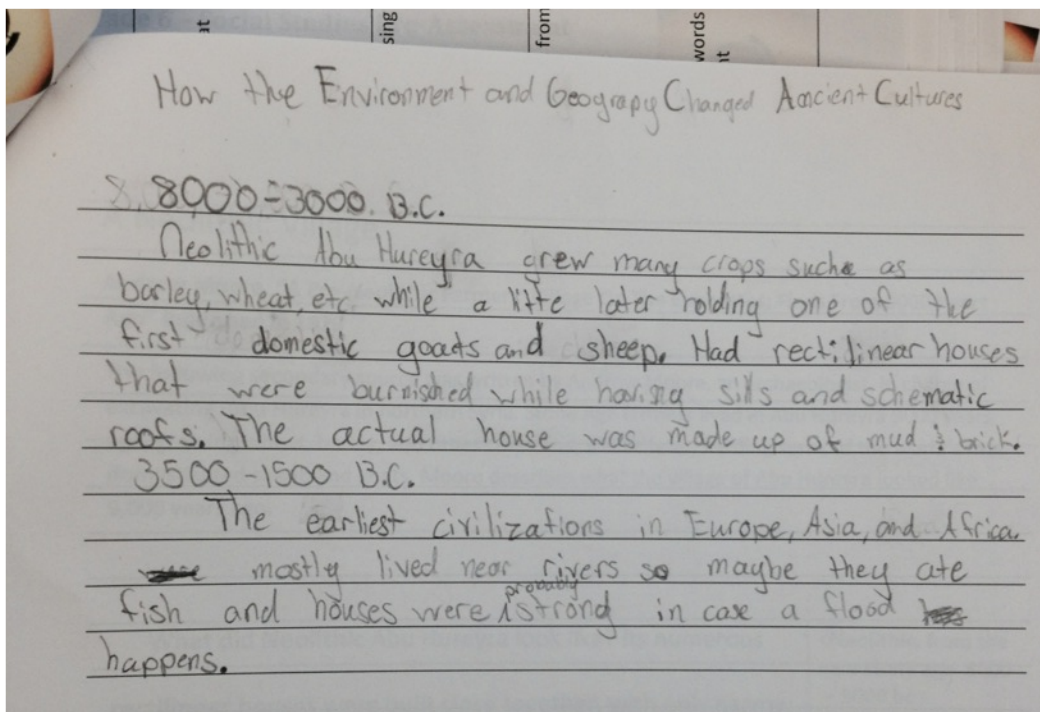 at
sing
from
words
How the Environment and Geograpy Changed Ancient Cultures
8000-3000 B.C.
Neolithic Abu Hureyra grew many crops such as
barley, wheat, etc. while a litte later holding one of the
first domestic goats and sheep. Had rectilinear houses
that were burnisched while having sills and schematic
roofs. The actual house was made up of mud & brick.
3500-1500 B.C.
The earliest civilizations in Europe, Asia, and Africa.
mostly lived near rivers so maybe they ate
fish and houses were probably strong in case a flood
happens.